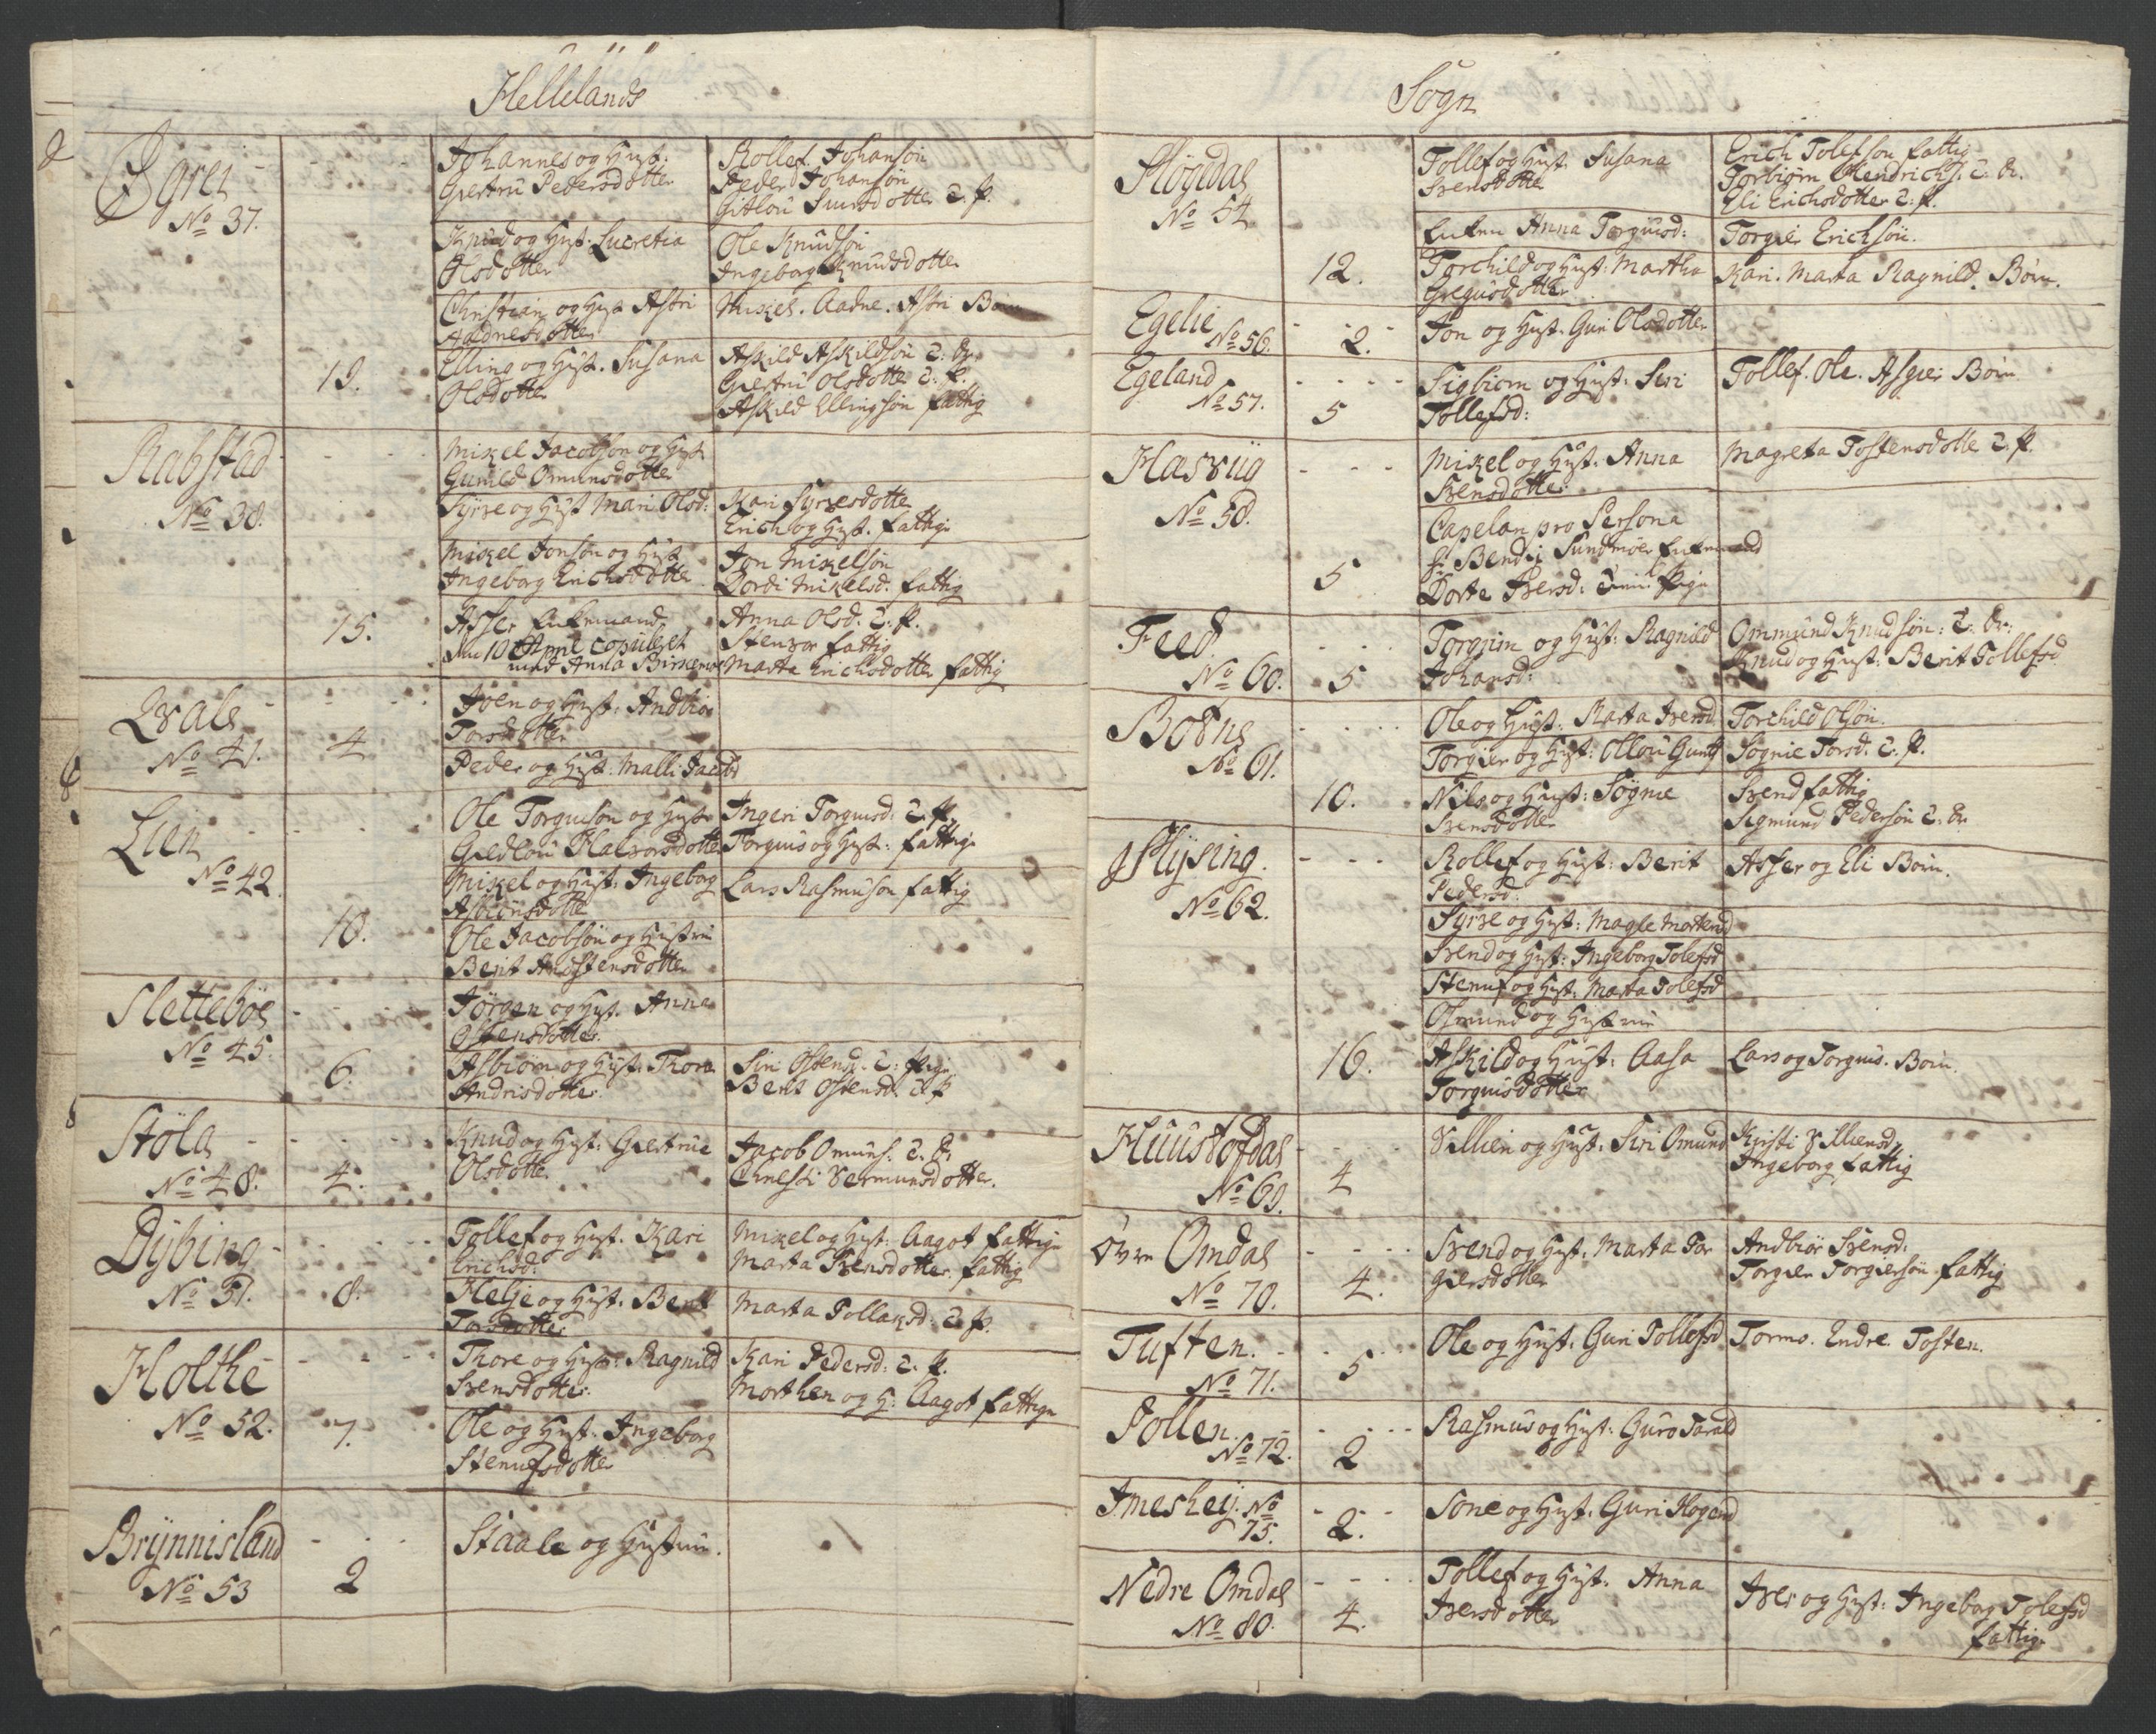 Hellelands
Øgrei
No 37.
Johannes og Hust:
Giertru Pedersdotter
Rollef Johanson
Peder Johanson
Gitlou Siursdotter T. P.
Knud og Hust: Lucretia
Olsdotter
Ole Knudsøn
Ingeborg Knudsdotter
Christian og Hust Astri
Aadnesdotter
Mikel. Aadne. Astri Børn
19.
Elling og Hust. Susana
Olsdotter
Askild Askildsøn T. Dr.
Giertru Olsdotter T. P.
Askild Ellingsøn fattig
Rabstad
No 38.
Mikel Jacobson og Hust
Gunild Omunsdotter
Syrve og Hust Mari Olsd:
Kari Syrvesdotter
Erich og Hust. fattige
Mikel Jonson og Hust
Ingeborg Erichsdotter
Jon Mikelsøn
Dordi Mikelsd. fattig
15.
Asser Enkemand
den 10 April copuleret
med Anna
Anna Olsd. T. P.
Stenvor fattig
Marta Erichsdotter fattig
Qvale
No 41.
4
Iven og Hust: Andbior
Torsdotter
Peder og Hust: Malli Jacobs
Lien
No 42.
Ole Torguison og Hust
Giedlou Halvorsdotter
Ingeri Torguisd: T. P.
Torguis og Hust: fattige
Mikel og Hust: Ingeborg
Asbiørnsdotter
Lars Rasmuson fattig
10.
Ole Jacobsøn og Hustrue
Berit Andstensdotter
Slettebøe
No 45.
Jørgen og Hust. Anna
Ostensdotter.
6.
Asbiørn og Hust: Thore
Andrisdotter
Siri Ostensd. T. Pige
Berit Ostensd. T. P
Støle
No 48.
4.
Knud og Hust: Giertrue
Olsdotter
Jacob Omuns. T. Dr.
Chresti Vermunsdotter.
Dybing
No 51.
8.
Tollef og Hust. Kari
Erichsd:
Mikel og Hust: Aagot fattige
Marta Svensdotter fattig
Helje og Hust. Berit
Torsdotter
Marta Pollaksd: T. P.
Holthe
No 52.
7.
Thore og Hust: Ragnild
Svensdotter.
Kari Pedersd: T. P.
Morthen og H: Aagot fattige
Ole og Hust. Ingeborg
Stenufsdotter
Brynnisland
No 53
2
Staale og Hustrue.
Sogn
Høgedal
No 54
Tollef og Hust. Susana
Svensdotter
Erich Tolefson fattig
Torbiørn Hendrichs. T. Dr.
Eli Erichsdotter T. P.
Enken Anna Torguisd:
Torgier Erichsøn.
12.
Torchild og Hust: Martha
Greguisdotter
Kari. Marta Ragnild. Børn.
Egelie
No 56.
2.
Jon og Hust. Guri Olsdotter
Egeland
No 57.
5
Sigbiørn og Hust: Siri
Tollefsd:
Tollef. Ole. Asgier Børn
Hasvüg
No 58.
Mikel og Hust. Anna
Svensdotter
Magreta Tostensdotter T. P.
5
Capelan pro Persona
Hr Bendix Sundmøer Enkemand
Dorte Iversd: Pige
Feed
No 60.
5
Torgrim og Hust: Ragnild
Johansd:
Ommund Knudsøn: T. Dr:
Knud og Hust: Berit Tollefsd
Botne
No 61.
Ole og Hust: Marta Iversd
Torchild Olsøn.
Torgier og Hust: Ollou Gunds
Sognie Torsd. T. P.
10.
Nils og Hust: Sognie
Svensdotter
Svend fattig
Sigmund Pedersøn T. Dr
Hysing.
No 62.
Rollef og Hust: Berit
Pedersd:
Asser og Eli Børn.
Syrve og Hust: Magle Mortensd
Svend og Hust: Ingeborg Tolefsd
Stenuf og Hust: Marta Tolefsd
Osmund og Hustrue
16.
Askild og Hust: Aasa
Torguisdotter
Lars og Torguis. Børn.
Huustofdal
No 69.
4
Villien og Hust: Siri Omund
Kirsti Villiensd
Ingeborg fattig
Øvre Omdal
No 70.
4.
Svend og Hust: Marta Tor
giersdotter
Andbiør Svensd:
Torgier Torgiersøn fattig
Tuften.
No 71.
5
Ole og Hust: Guri Tollefsd
Tormo. Endre. Tosten.
Tollen
No 72.
2
Rasmus og Hust: Guro Tarald
Imeshej. No
75.
2.
Sone og Hust: Guri Hogend
Nedre Omdal
No 80.
4.
Tollef og Hust: Anna
Iversdotter
Iver og Hust: Ingeborg Tolefsd
fattige